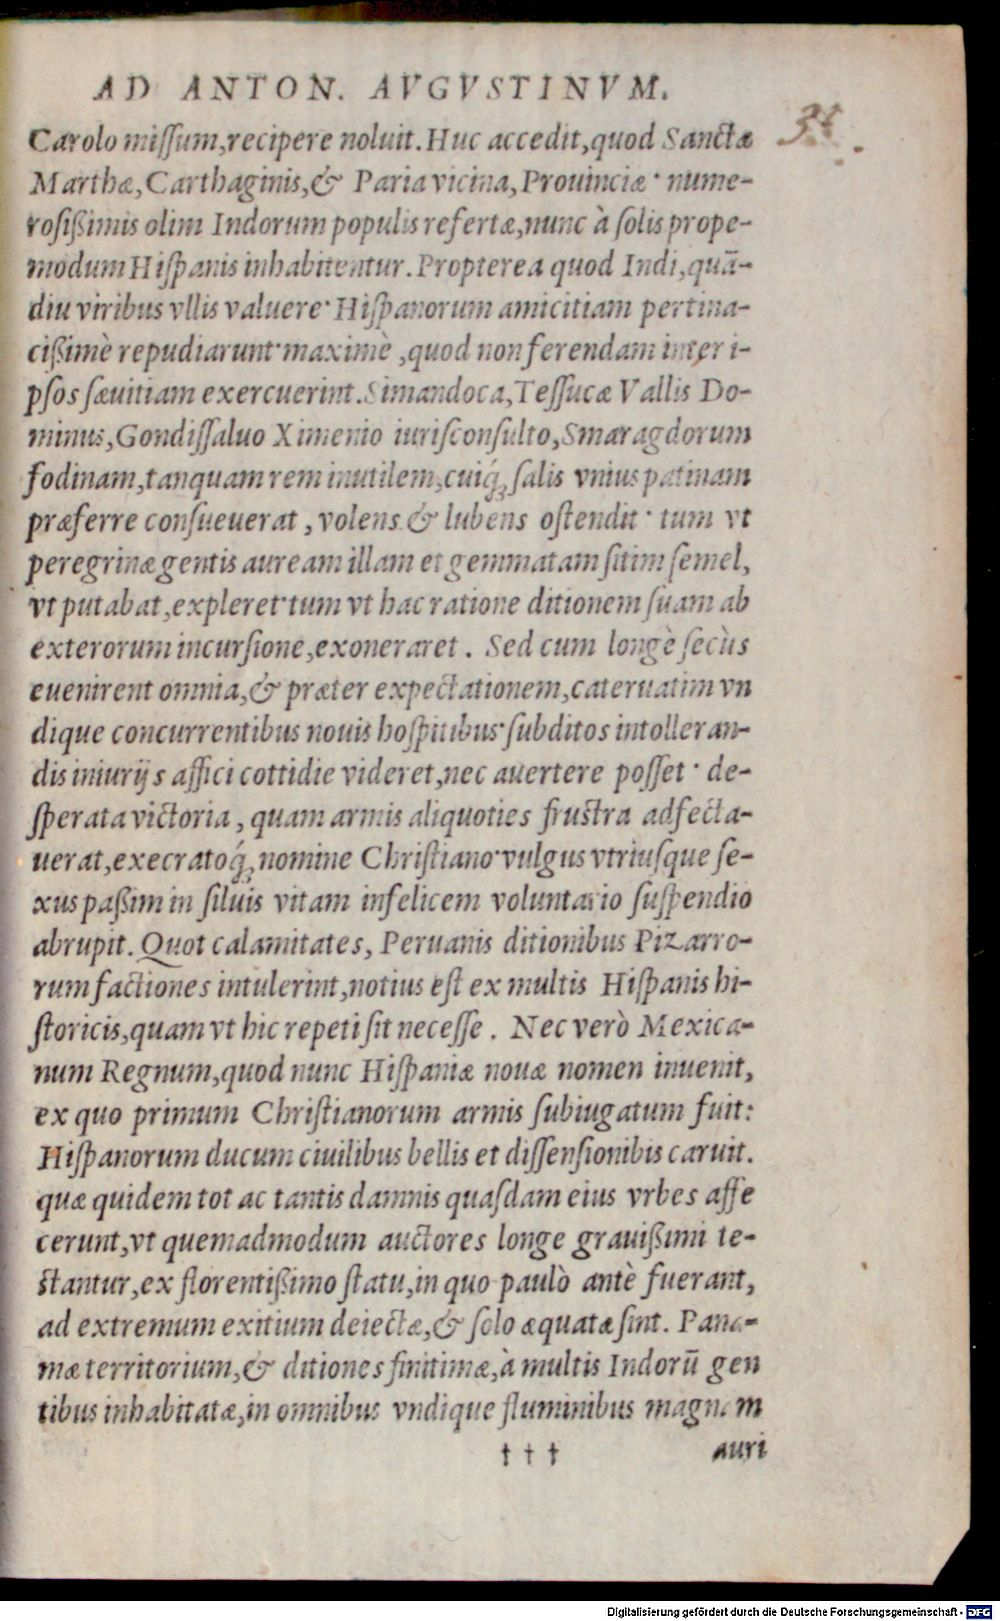 AD ANTON. AVGVSTINVM.
Carolo missum,recipere noluit. Huc accedit,quod Sanctæ
Marthæ,Carthaginis,& Paria vicina,Prouinciæ· nume-
rosißimis olim Indorum populis refertæ,nunc à solis prope-
modum Hispanis inhabitentur. Propterea quod Indi,quā-
diu viribus vllis valuere· Hispanorum amicitiam pertina-
cißimè repudiarunt·maximè ,quod non ferendam inter i-
psos sæuitiam exercuerint. Simandoca,Tessucæ Vallis Do-
minus,Gondissaluo Ximenio iurisconsulto,Smaragdorum
fodinam,tanquam rem inutilem,cuiq́ꝫ salis vnius patinam
præferre consueuerat , volens & lubens ostendit · tum vt
peregrinæ gentis auream illam et gemmatam sitim semel,
vt putabat,expleret·tum vt hac ratione ditionem suam ab
exterorum incursione,exoneraret . Sed cum longè secùs
euenirent omnia,& præter expectationem,cateruatim vn
dique concurrentibus nouis hospitibus·subditos intolleran-
dis iniurijs affici cottidie videret,nec auertere posset · de-
sperata victoria , quam armis aliquoties frustra adfecta-
uerat,execratoq́ꝫ nomine Christiano·vulgus vtriusque se-
xus paßim in siluis vitam infelicem voluntario suspendio
abrupit. Quot calamitates, Peruanis ditionibus Pizarro-
rum factiones intulerint,notius est ex multis Hispanis hi-
storicis,quam vt hic repeti sit necesse . Nec verò Mexica-
num Regnum,quod nunc Hispaniæ nouæ nomen inuenit,
ex quo primum Christianorum armis subiugatum fuit:
Hispanorum ducum ciuilibus bellis et dissensionibis caruit.
quæ quidem tot ac tantis damnis quasdam eius vrbes affe
cerunt,vt quemadmodum auctores longe grauißimi te-
stantur,ex florentißimo statu,in quo paulò antè fuerant,
ad extremum exitium deiectæ,& solo æquatæ sint. Pana-
mæ territorium,& ditiones finitimæ,à multis Indorū gen
tibus inhabitatæ,in omnibus vndique fluminibus magnam
† † † auri
Digitalisierung gefördert durch die Deutsche Forschungsgemeinschaft - DFG